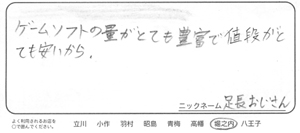 ゲームソフトの量がとても豊富で値段がと
ても安いから。
ニックネーム 足長おじさん
よく利用されるお店を
○で囲んでください。
立川 小作 羽村 昭島 青梅 高幡 堀之内 八王子